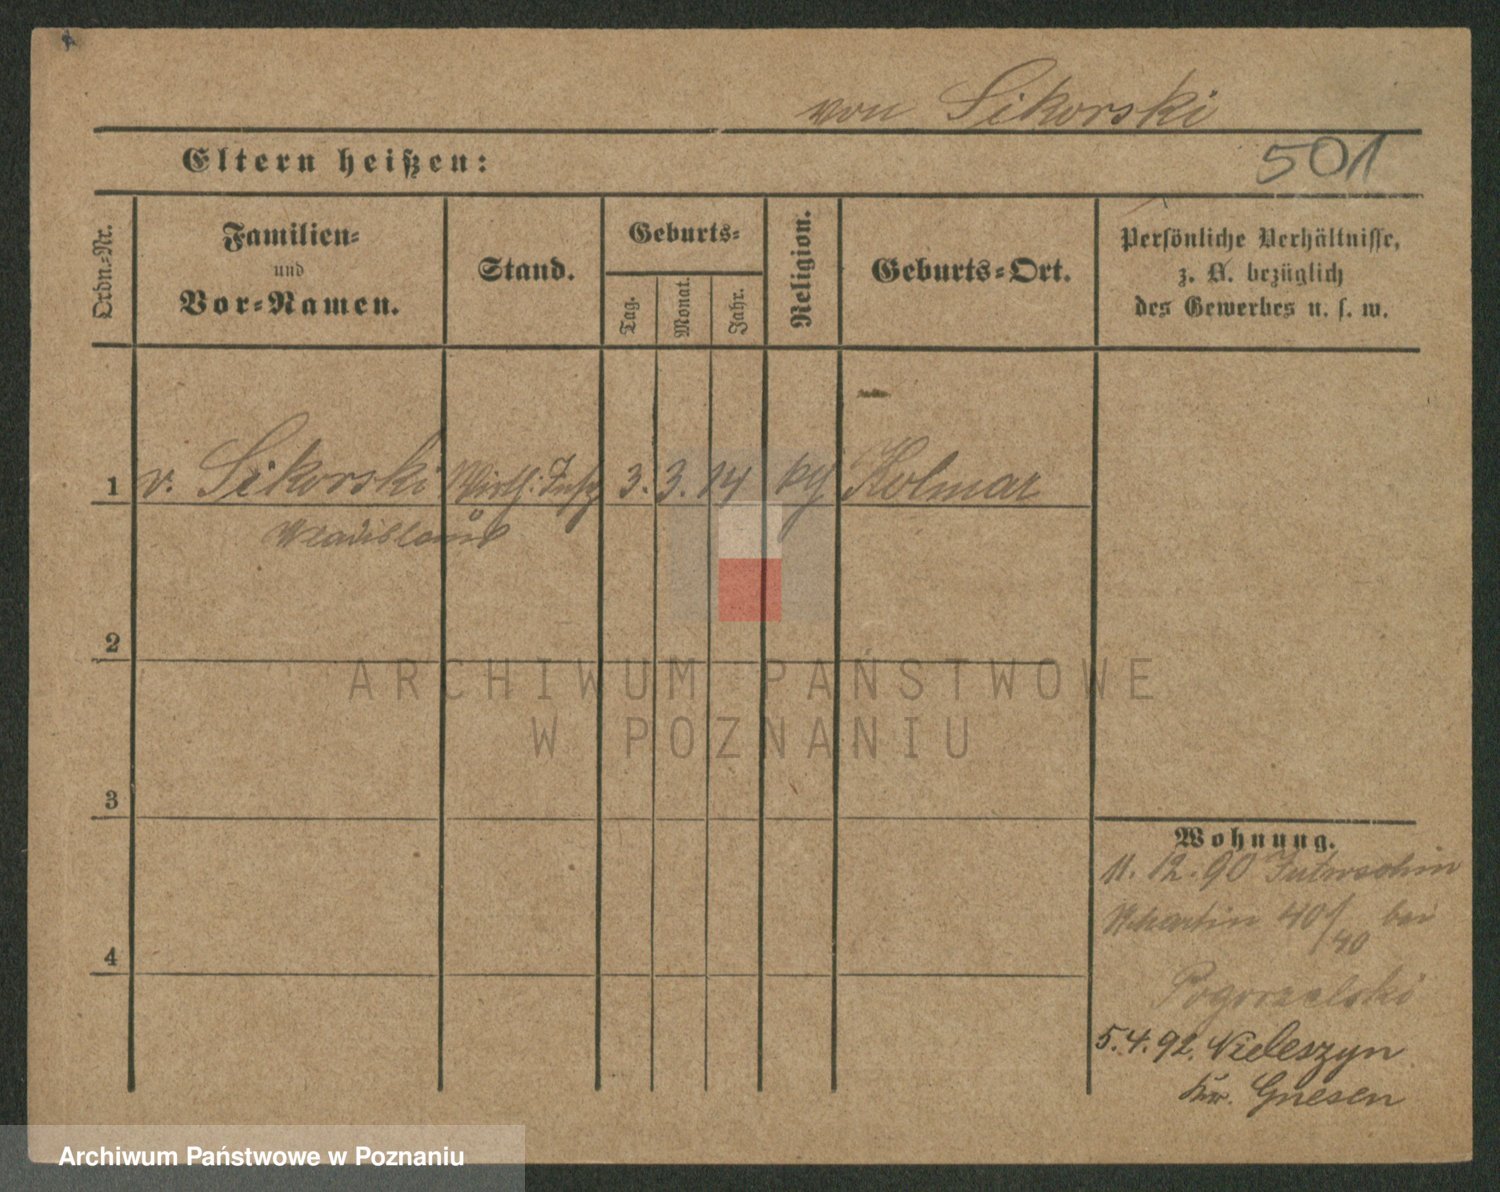 von Sikorski
Eltern heißen:
501
Ordn.-Nr.
Familien-
und
Vor-Namen.
Stand.
Geburts-
Tag.
Monat.
Jahr.
Religion.
Geburts-Ort.
Persönliche Verhältnisse,
z. B. bezüglich
des Gewerbes u. s. w.
1 v. Sikorski Wirth. Insp 3. 3. 14 Kolmar
Wladislaus
2
3
4
Wohnung.
11. 12. 90 Jutroschin
Martin 40/40 bei
Pogorzelski
5.4.92. Kr. Gnesen
ARCHIWUM PAŃSTWOWE
W POZNANIU
Archiwum Państwowe w Poznaniu